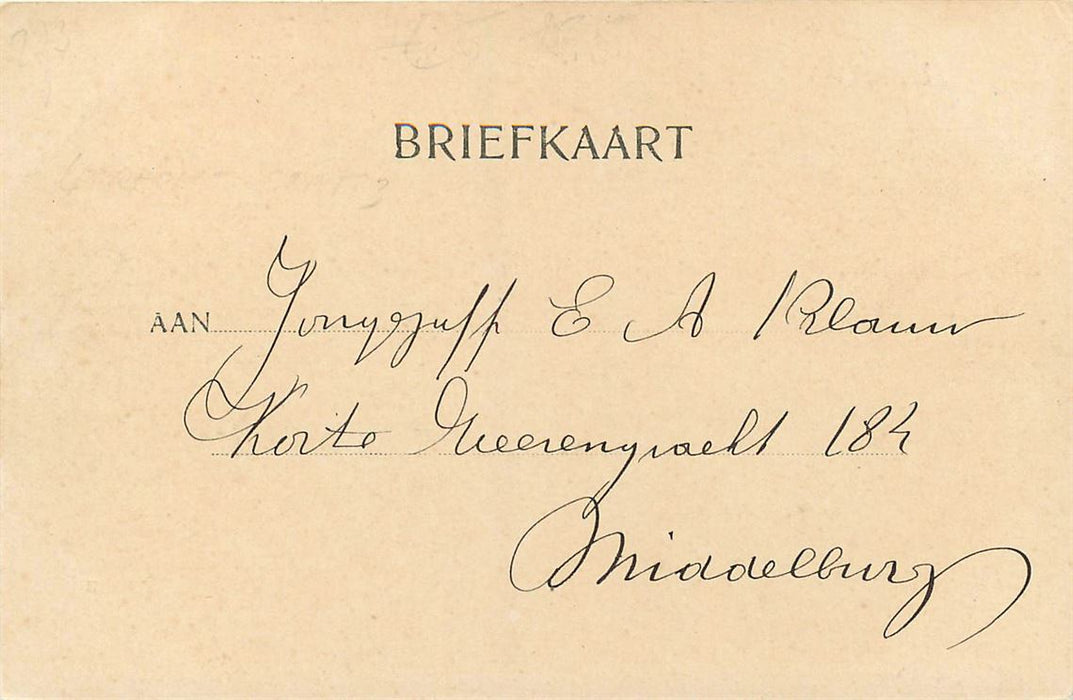 BRIEFKAART
AAN Jongejuff E A Klauw
Korte Heerengracht 184
Middelburg